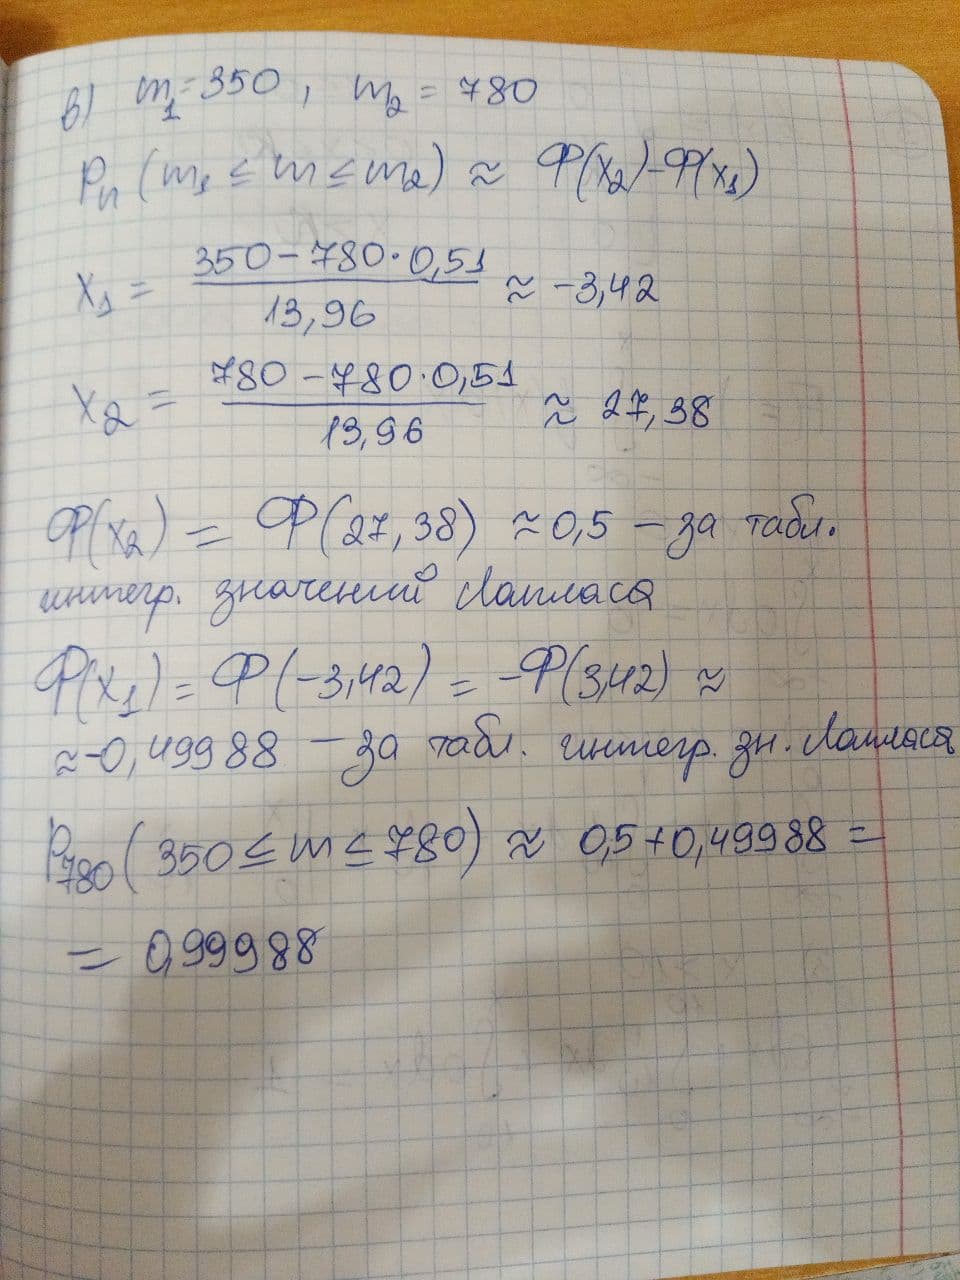 в) m₁=350, m₂=780
Pₙ(m₁≤m≤m₂)≈Ф(x₂)-Ф(x₁)
x₁= (350-780·0,51)/13,96 ≈ -3,42
x₂= (780-780·0,51)/13,96 ≈ 27,38
Ф(x₂)=Ф(27,38)≈0,5 - за табл.
интегр. значений Лапласа
Ф(x₁)=Ф(-3,42)=-Ф(3,42)≈
≈-0,49988 - за табл. интегр. зн. Лапласа
P₇₈₀(350≤m≤780)≈0,5+0,49988=
=0,99988